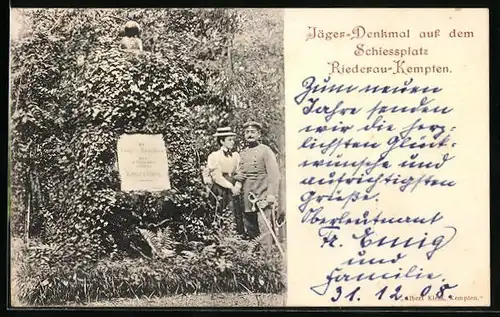 Jäger-Denkmal auf dem
Schiessplatz
Riederau-Kempten.
Zum neuen
Jahre senden
wir die herz-
lichsten Glück-
wünsche und
aufrichtigsten
Grüße.
Oberleutnant
Fr. Emig
und
Familie.
31. 12. 08.
Albert Klein, Kempten.